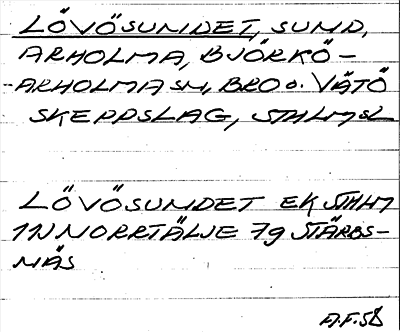 LÖVÖSUNDET, SUND,
ARHOLMA, BJÖRKÖ-
-ARHOLMA SN, BRO O. VÄTÖ
SKEPPSLAG, STHLMSL
LÖVÖSUNDET EK STHLM
11N NORRTÄLJE 7g STÄRBS-
NÄS
A.F. 58